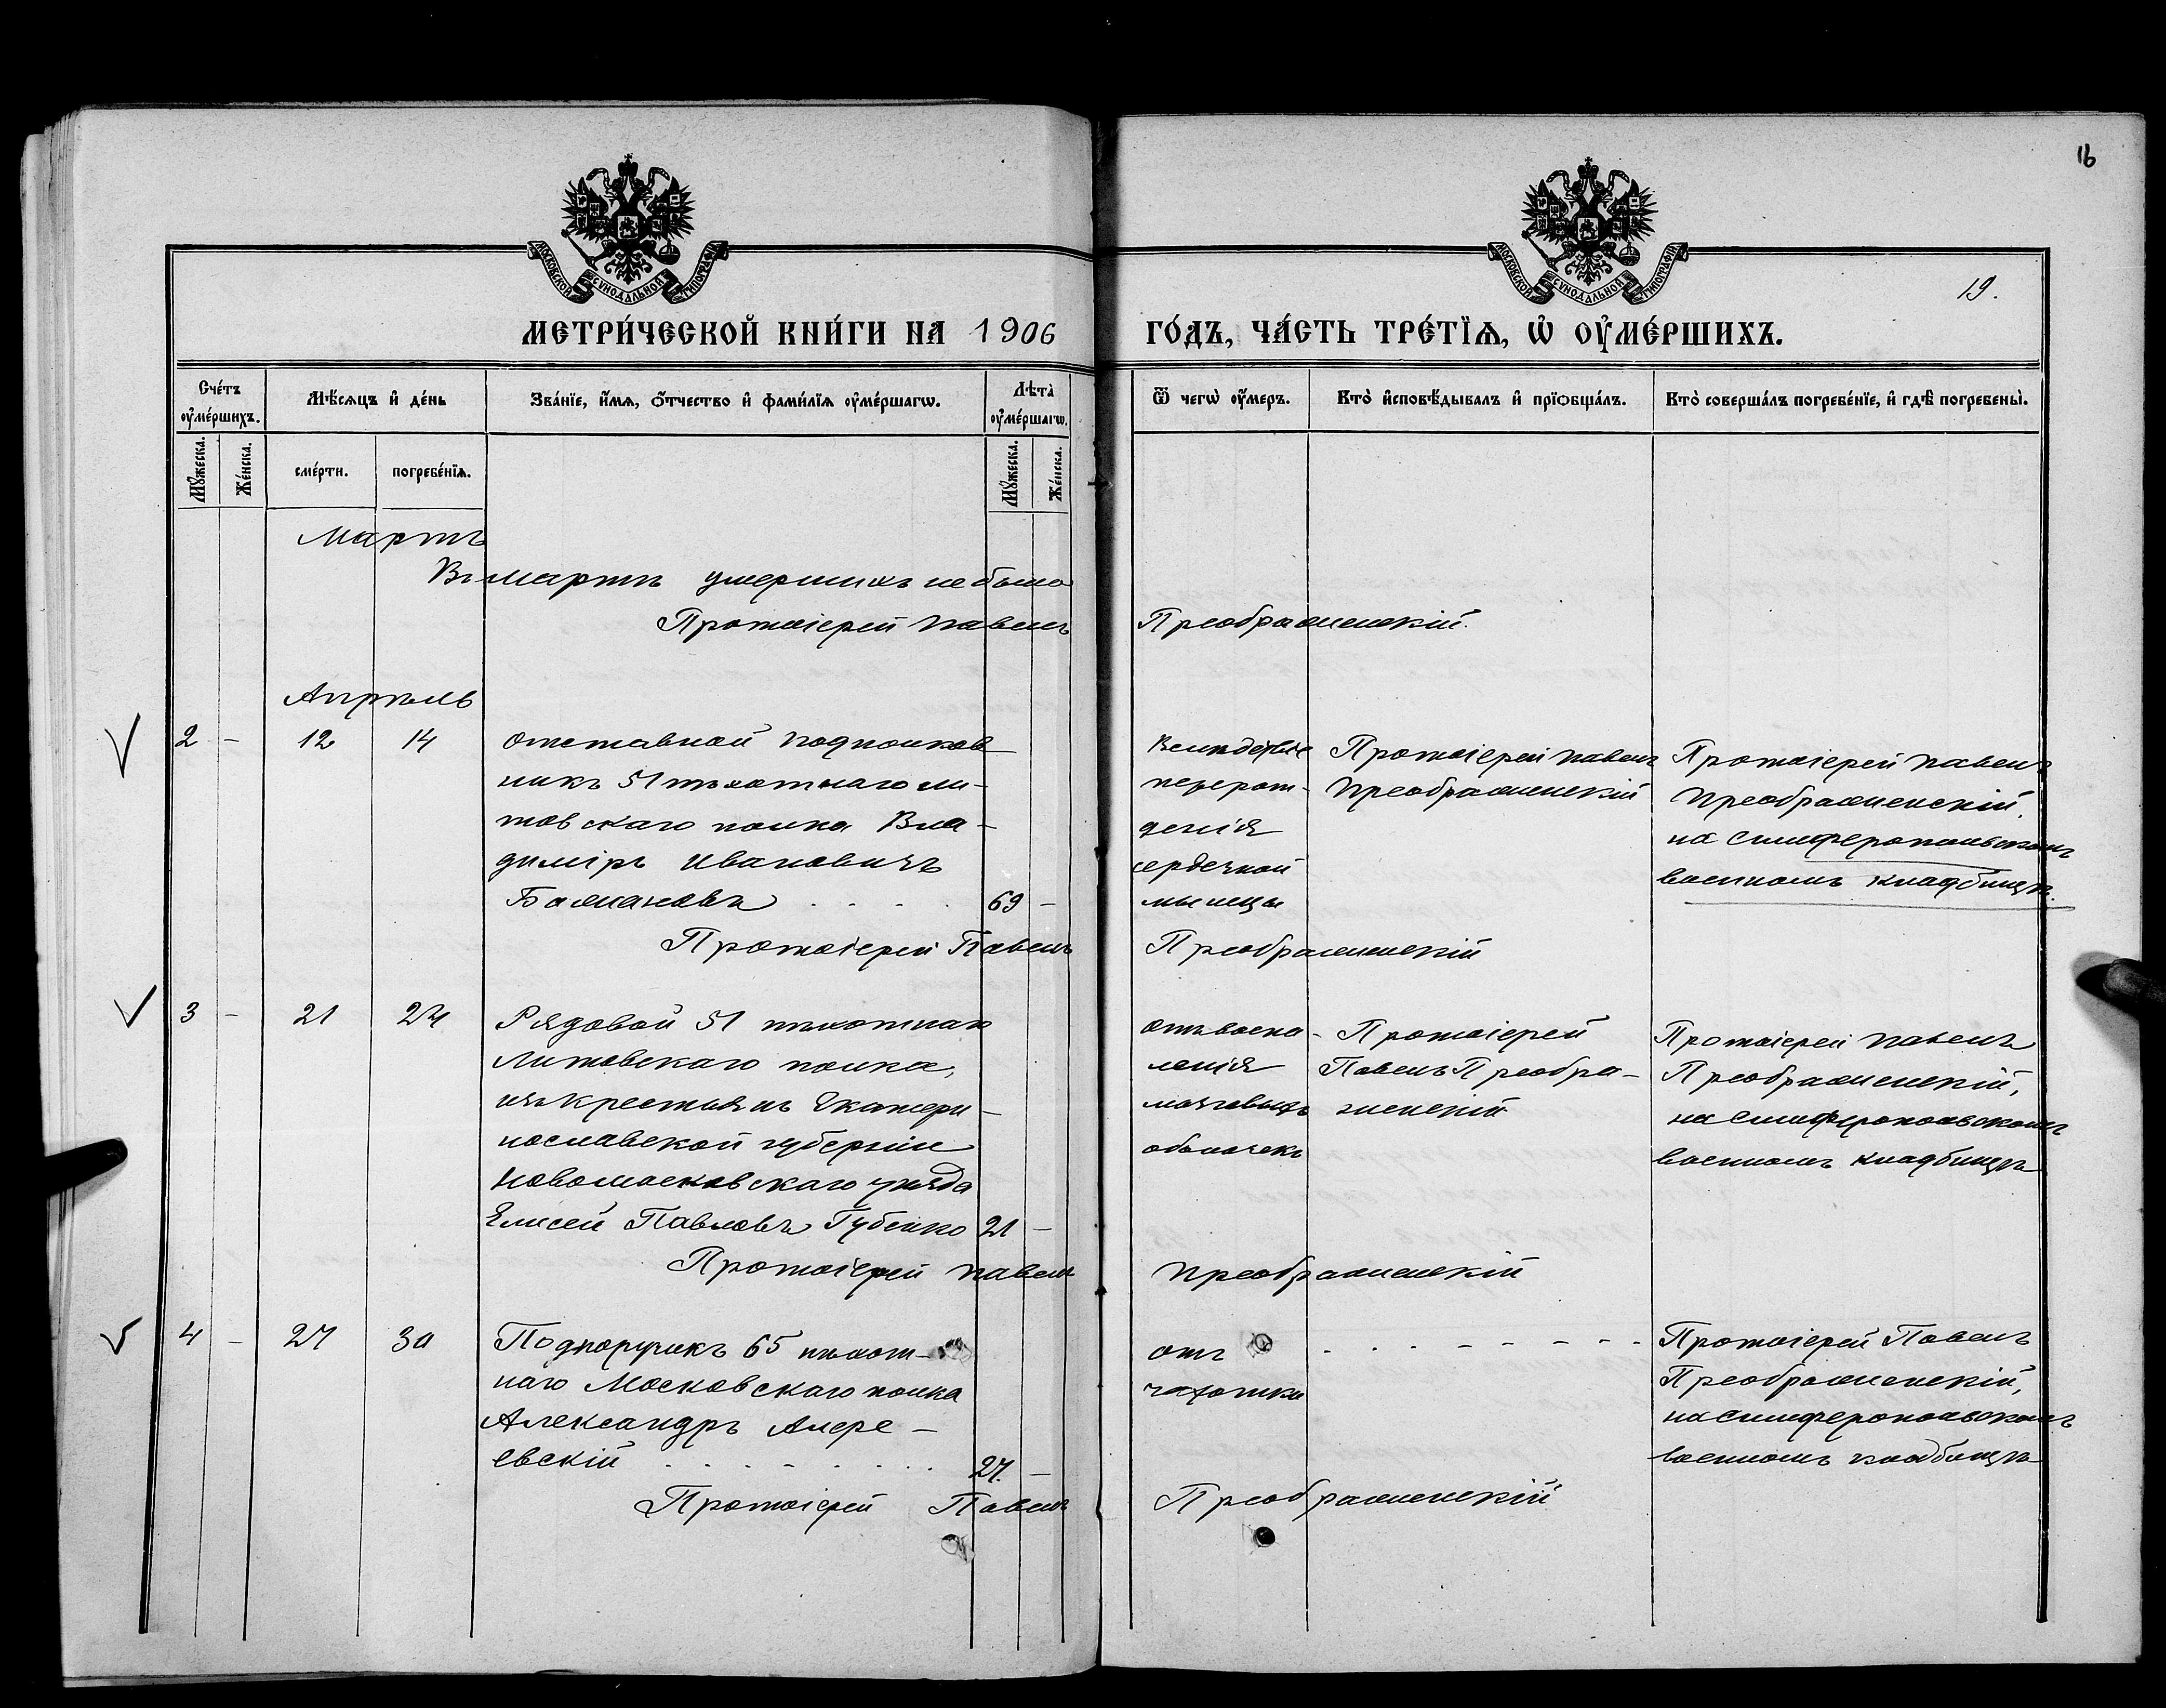 16
МОСКОВСКОЙ СУНОДАЛЬНОЙ ТИПОГРАФІИ
МОСКОВСКОЙ СУНОДАЛЬНОЙ ТИПОГРАФІИ
19.
МЕТРИ́ЧЕСКОЙ КНИ́ГИ НА 1906 ГО́ДЪ, ЧА́СТЬ ТРЕ́ТЇѦ, Ѡ҆ ОУ҆МЕ́РШИХЪ.
Сче́тъ оу҆ме́ршихъ.
Мѣ́сѧцъ и҆ де́нь
Зва́нїе, и҆́мѧ, ѻ҆́тчество и҆ фами́лїѧ оу҆ме́ршагѡ.
Лѣта̀ оу҆ме́ршагѡ.
Ѿ чегѡ̀ оу҆́меръ.
Кто̀ и҆сповѣ́дывалъ и҆ прїѻбща́лъ.
Кто̀ соверша́лъ погребе́нїе, и҆ гдѣ̀ погребены̀.
Мꙋ́жеска.
Же́нска.
сме́рти.
погребе́нїѧ.
Мꙋ́жеска.
Же́нска.
Мартъ
Въ мартѣ умершихъ не было
Протоіерей Павелъ Преображенскій.
Апрѣль
2 - 12 14
Отставной подполков-
никъ 51 пѣхотнаго Ли-
товскаго полка Вла-
диміръ Ивановичъ
69 -
Вслѣдствіе
перерож-
денія
сердечной
мышцы
Протоіерей Павелъ
Преображенскій
Протоіерей Павелъ
Преображенскій,
на Симферопольскомъ
военномъ кладбищѣ.
Протоіерей Павелъ Преображенскій
3 - 21 24
Рядовой 51 пѣхотнаго
Литовскаго полка,
изъ крестьянъ Екатери-
нославской губерніи
Новомосковскаго уѣзда
Елисей Павловъ Губенко 21 -
Отъ воспа-
ленія
мозговыхъ
оболочекъ
Протоіерей
Павелъ Преобра-
женскій
Протоіерей Павелъ
Преображенскій,
на Симферопольскомъ
военномъ кладбищѣ
Протоіерей Павелъ Преображенскій
4 - 27 30
Подпоручикъ 65 пѣхот-
наго Московскаго полка
Александръ
евскій 27. -
отъ
чахотки
Протоіерей Павелъ
Преображенскій,
на Симферопольскомъ
военномъ кладбищѣ
Протоіерей Павелъ Преображенскій